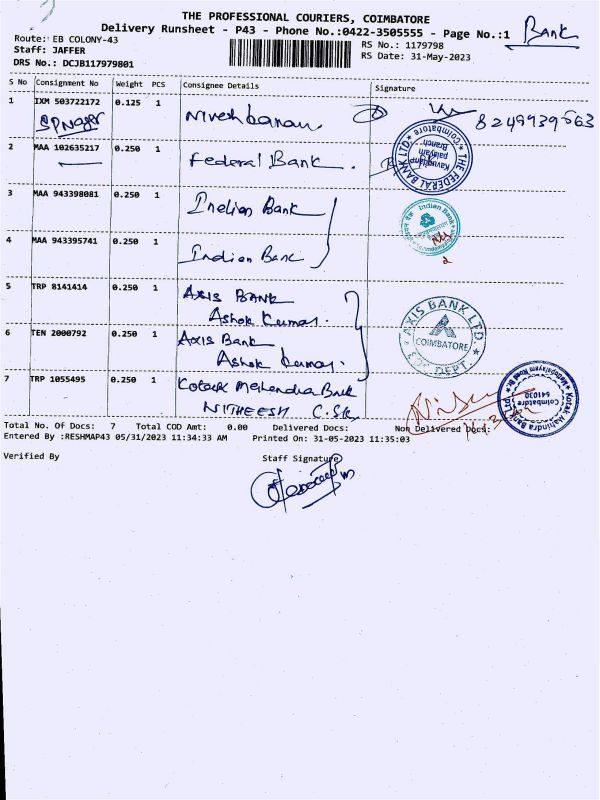 THE PROFESSIONAL COURIERS, COIMBATORE
Delivery Runsheet - P43 - Phone No.:0422-3505555 - Page No.:1 Bank
Route: EB COLONY-43
Staff: JAFFER
DRS No.: DCJB117979801
RS No.: 1179798
RS Date: 31-May-2023
S No Consignment No Weight PCS Consignee Details Signature
1 IXM 503722172 0.125 1
SP Nagar
2 MAA 102635217 0.250 1 Federal Bank
THE FEDERAL BANK LTD. Coimbatore Branch
3 MAA 943398081 0.250 1 Indian Bank
Indian Bank
4 MAA 943395741 0.250 1 Indian Bank
5 TRP 8141414 0.250 1 AXIS BANK
Ashok Kumar.
AXIS BANK LTD. COIMBATORE
6 TEN 2000792 0.250 1 Axis Bank
Ashok Kumar.
7 TRP 1055495 0.250 1 Kotak Mahendra Bank
NITHEESH
Kotak Mahindra Bank Coimbatore 641030
Total No. Of Docs: 7 Total COD Amt: 0.00 Delivered Docs: Non Delivered Docs:
Entered By :RESHMAP43 05/31/2023 11:34:33 AM Printed On: 31-05-2023 11:35:03
Verified By Staff Signature